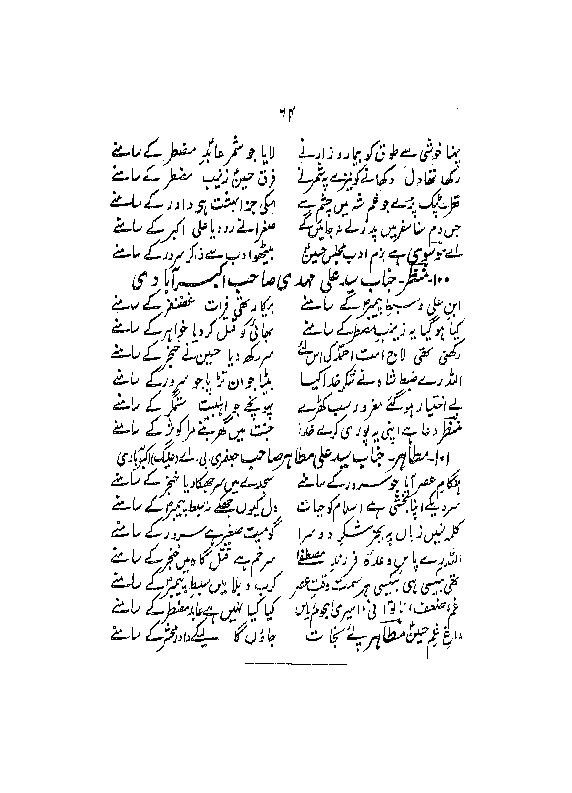 ۶۴
پہنا خوشی سے طوق کو بیمار و زار نے لایا جو شمر عابدِ مضطر کے سامنے
رکھا تھا دل دکھانے کو نیزے پہ شمر نے فرقِ حسینؑ زینبِ مضطر کے سامنے
ٹپک پڑے جو غمِ شہ میں چشم سے اسکی جزا بہشت ہی داور کے سامنے
جس دم سفر میں پدر نے علی اکبر کے سامنے
اے موسوی ہے بزمِ ادب مجلسِ حسینؑ بیٹھو ادب سے ذاکرِ سرور کے سامنے
۱۰۰۔ منتظر۔ جناب سید علی مہدی صاحب اکبرآبادی
ابنِ علی و سبطِ پیمبرؐ کے سامنے بیکار تھی فرات غضنفر کے سامنے
کیا ہو گیا یہ زینبِ مضطر کے سامنے بھائی کو قتل کر دیا خواہر کے سامنے
رکھنی تھی لاج امتِ احمدؐ کی اس لئے سر رکھ دیا حسین نے خنجر کے سامنے
اللہ رے ضبط شاہ نے شکرِ خدا کیا بیٹا جوان تڑپا جو سرور کے سامنے
بے اختیار ہو گئے مغرور سب کھڑے پہونچے جو اہلبیت ستمگر کے سامنے
منتظر دعا ہے اپنی یہ پوری کرے خدا جنت میں گھر بنے مرا کوثر کے سامنے
۱۰۱۔ مظاہر۔ جناب سید علی مظاہر صاحب جعفری بی۔ اے (علیگ) اکبرآبادی
ہنگامِ عصر آیا جو سرور کے سامنے سجدے میں سر جھکا دیا خنجر کے سامنے
سر دیکے اپنا بخشی ہے اسلام کو حیات دل کیوں نہ جھکے سبطِ پیمبرؐ کے سامنے
کلمہ نہیں زباں پہ بجز شکر دوسرا گو میتِ صغیر ہے سرور کے سامنے
اللہ رے پاسِ وعدۂ فرزندِ مصطفےٰؐ سر خم ہے قتل گاہ میں خنجر کے سامنے
تھی بیکسی ہی بیکسی ہر سمت وقتِ عصر کرب و بلا میں سبطِ پیمبرؐ کے سامنے
غم، ضعف، ناتوانی، اسیری، ہجومِ یاس کیا کیا نہیں ہے عابدِ مضطر کے سامنے
داغِ غمِ حسینؑ مظاہر پئے نجات جاؤں گا لیکے داورِ محشر کے سامنے